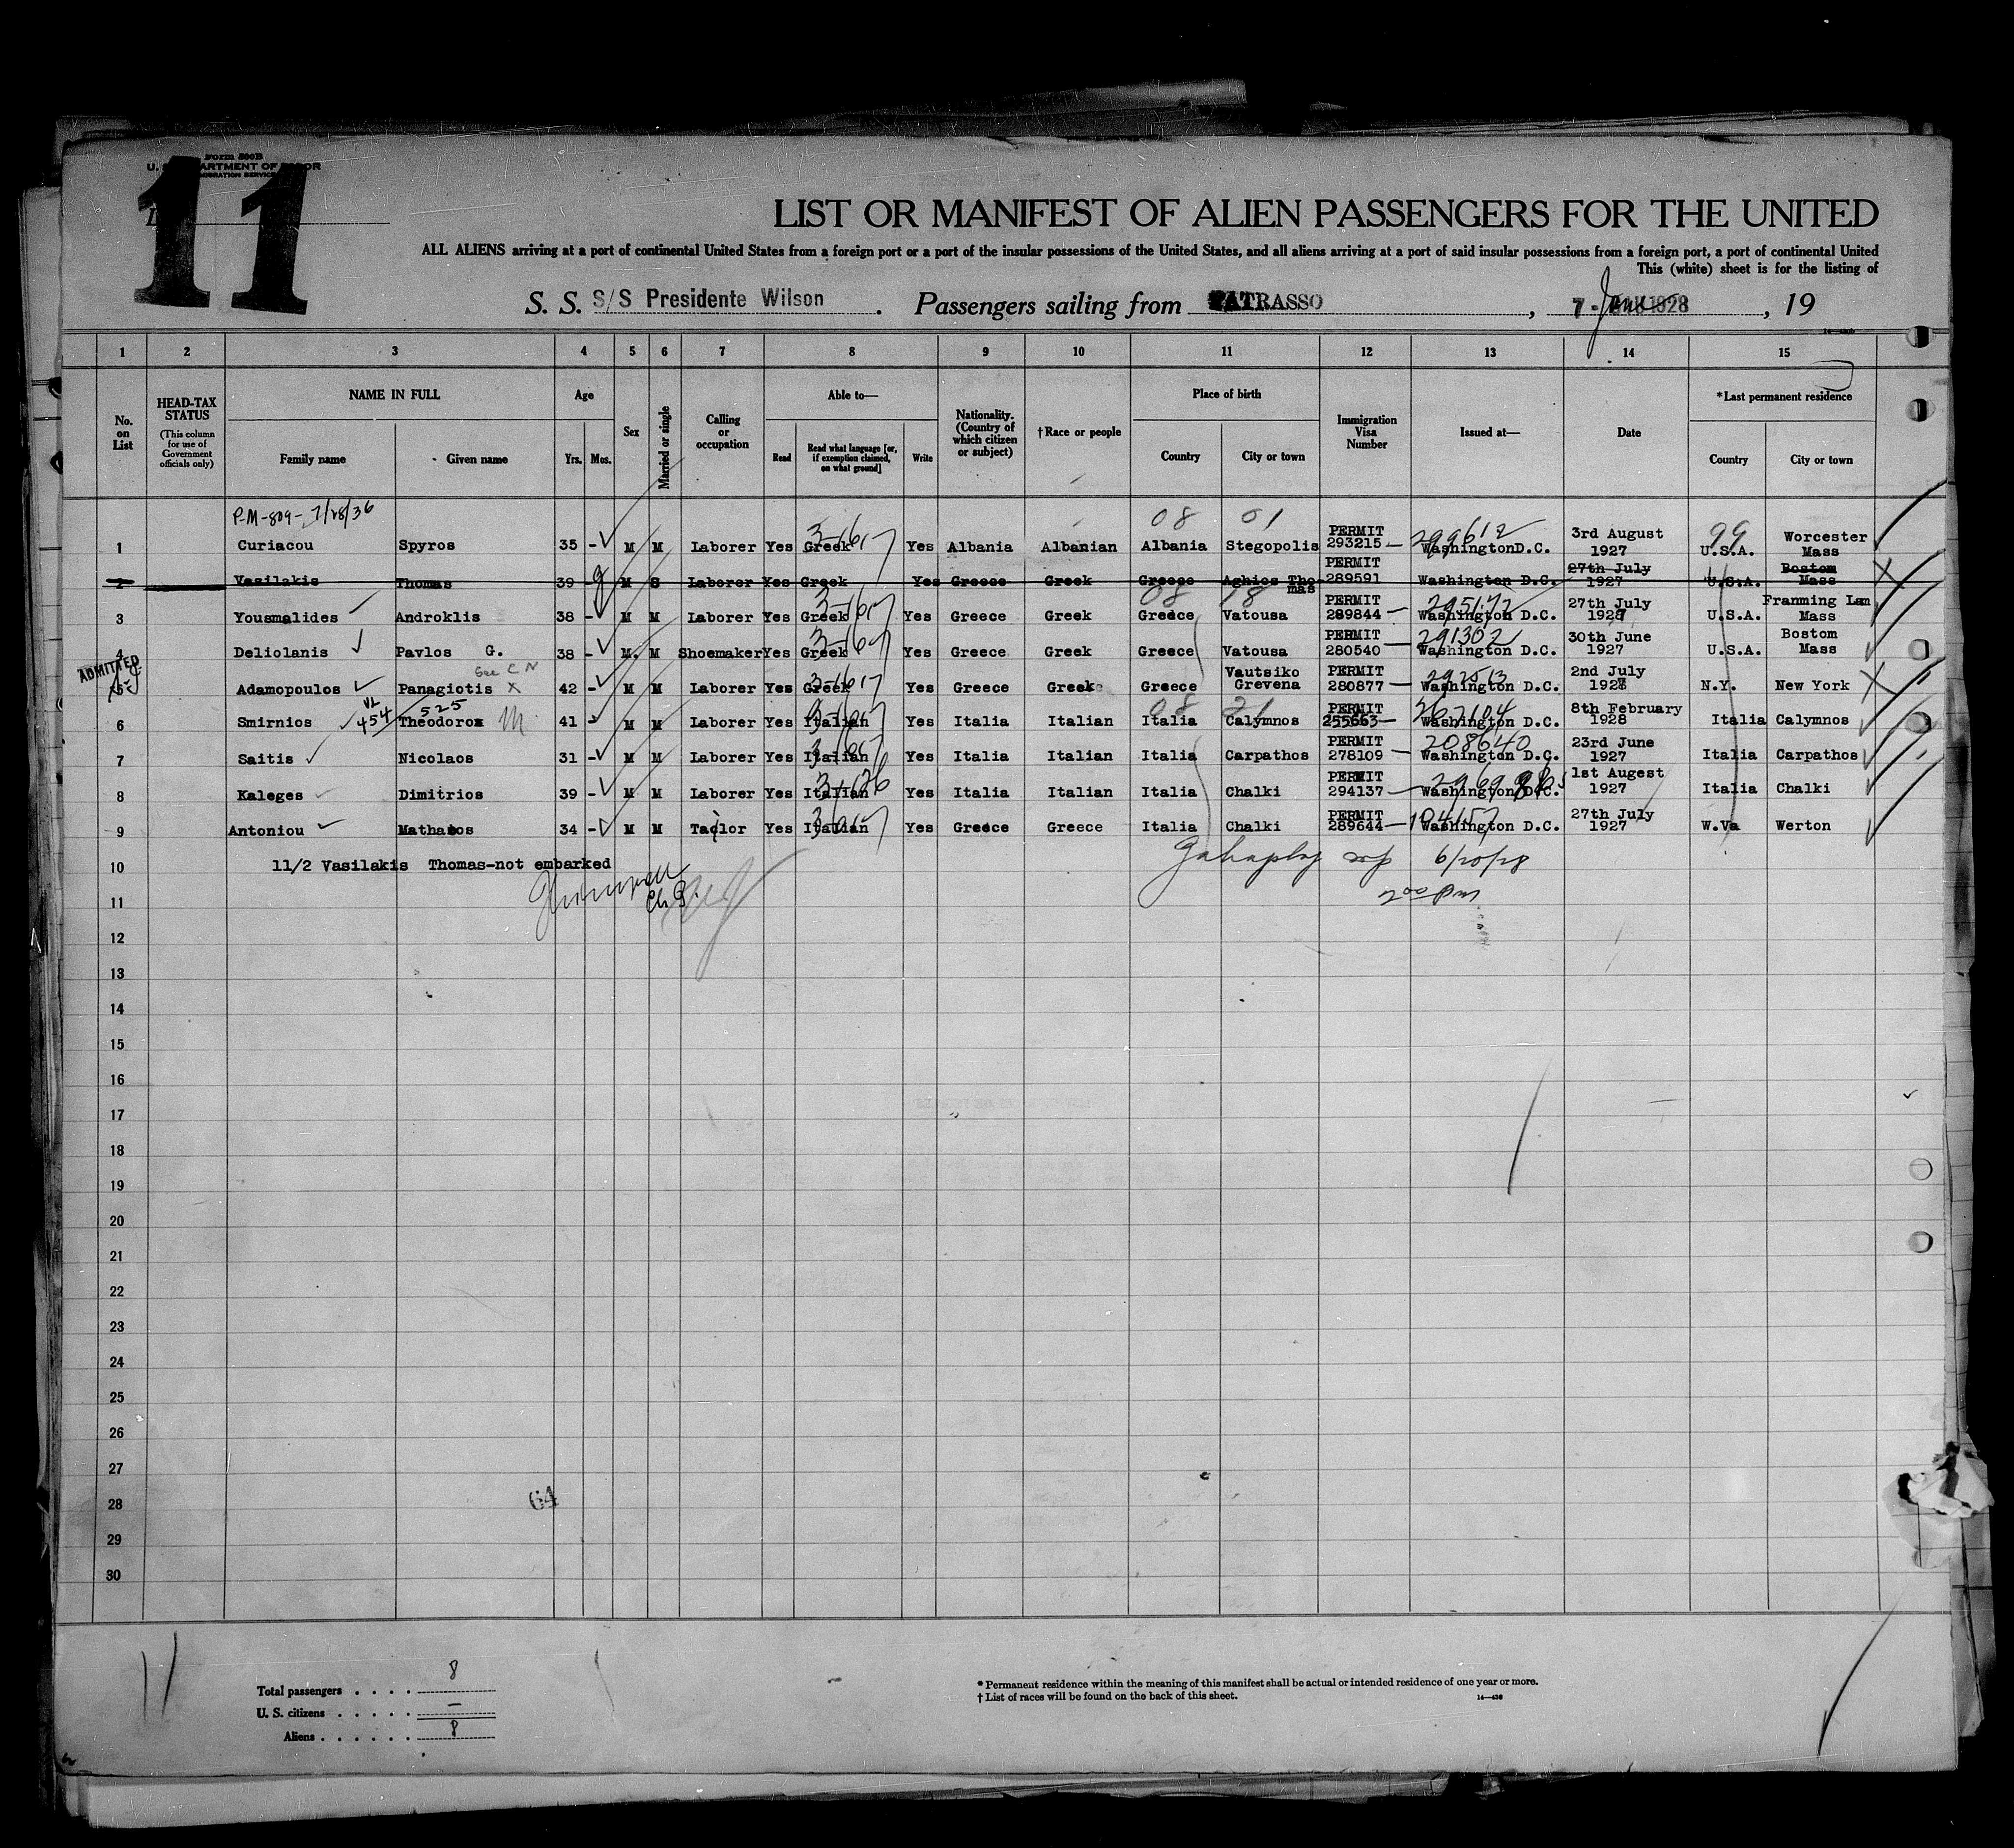 Form 500B
U. S. DEPARTMENT OF LABOR
IMMIGRATION SERVICE
11
LIST OR MANIFEST OF ALIEN PASSENGERS FOR THE UNITED
ALL ALIENS arriving at a port of continental United States from a foreign port or a port of the insular possessions of the United States, and all aliens arriving at a port of said insular possessions from a foreign port, a port of continental United
This (white) sheet is for the listing of
S. S. S/S Presidente Wilson . Passengers sailing from PATRASSO , 7- June 1928 , 19
1 2 3 4 5 6 7 8 9 10 11 12 13 14 15
No. on List
HEAD-TAX STATUS (This column for use of Government officials only)
NAME IN FULL Family name Given name
Age Yrs. Mos.
Sex
Married or single
Calling or occupation
Able to— Read Read what language [or, if exemption claimed, on what ground] Write
Nationality. (Country of which citizen or subject)
†Race or people
Place of birth Country City or town
Immigration Visa Number
Issued at—
Date
*Last permanent residence Country City or town
P-M-809- 7/28/36
08 01 299612 99
1 Curiacou Spyros 35 - M M Laborer Yes Greek Yes Albania Albanian Albania Stegopolis PERMIT 293215 Washington D.C. 3rd August 1927 U.S.A. Worcester Mass
2 Vasilakis Thomas 39 - M S Laborer Yes Greek Yes Greece Greek Greece Aghios Tho-mas PERMIT 289591 Washington D.C. 27th July 1927 U.S.A. Bostom Mass
08 18 295172
3 Yousmalides Androklis 38 - M M Laborer Yes Greek Yes Greece Greek Greece Vatousa PERMIT 289844 Washington D.C. 27th July 1927 U.S.A. Franming Lam Mass
291302
4 Deliolanis Pavlos G. 38 - M. M Shoemaker Yes Greek Yes Greece Greek Greece Vatousa PERMIT 280540 Washington D.C. 30th June 1927 U.S.A. Bostom Mass
ADMITTED
See C N
292513
5 Adamopoulos Panagiotis X 42 - M M Laborer Yes Greek Yes Greece Greek Greece Vautsiko Grevena PERMIT 280877 Washington D.C. 2nd July 1927 N.Y. New York
454 525 08 21 262104
6 Smirnios Theodoros 41 - M M Laborer Yes Italian Yes Italia Italian Italia Calymnos PERMIT 255663 Washington D.C. 8th February 1928 Italia Calymnos
208640
7 Saitis Nicolaos 31 - M M Laborer Yes Italian Yes Italia Italian Italia Carpathos PERMIT 278109 Washington D.C. 23rd June 1927 Italia Carpathos
8 Kaleges Dimitrios 39 - M M Laborer Yes Italian Yes Italia Italian Italia Chalki PERMIT 294137 Washington D.C. 1st Augest 1927 Italia Chalki
104157
9 Antoniou Mathaos 34 - M M Tailor Yes Italian Yes Greece Greece Italia Chalki PERMIT 289644 Washington D.C. 27th July 1927 W.Va Werton
10 11/2 Vasilakis Thomas-not embarked 6/20/28
11 2 00 pm
12
13
14
15
16
17
18
19
20
21
22
23
24
25
26
27
28
64
29
30
Total passengers . . . . 8
U. S. citizens . . . . . —
Aliens . . . . . . 8
* Permanent residence within the meaning of this manifest shall be actual or intended residence of one year or more.
† List of races will be found on the back of this sheet.
14—430